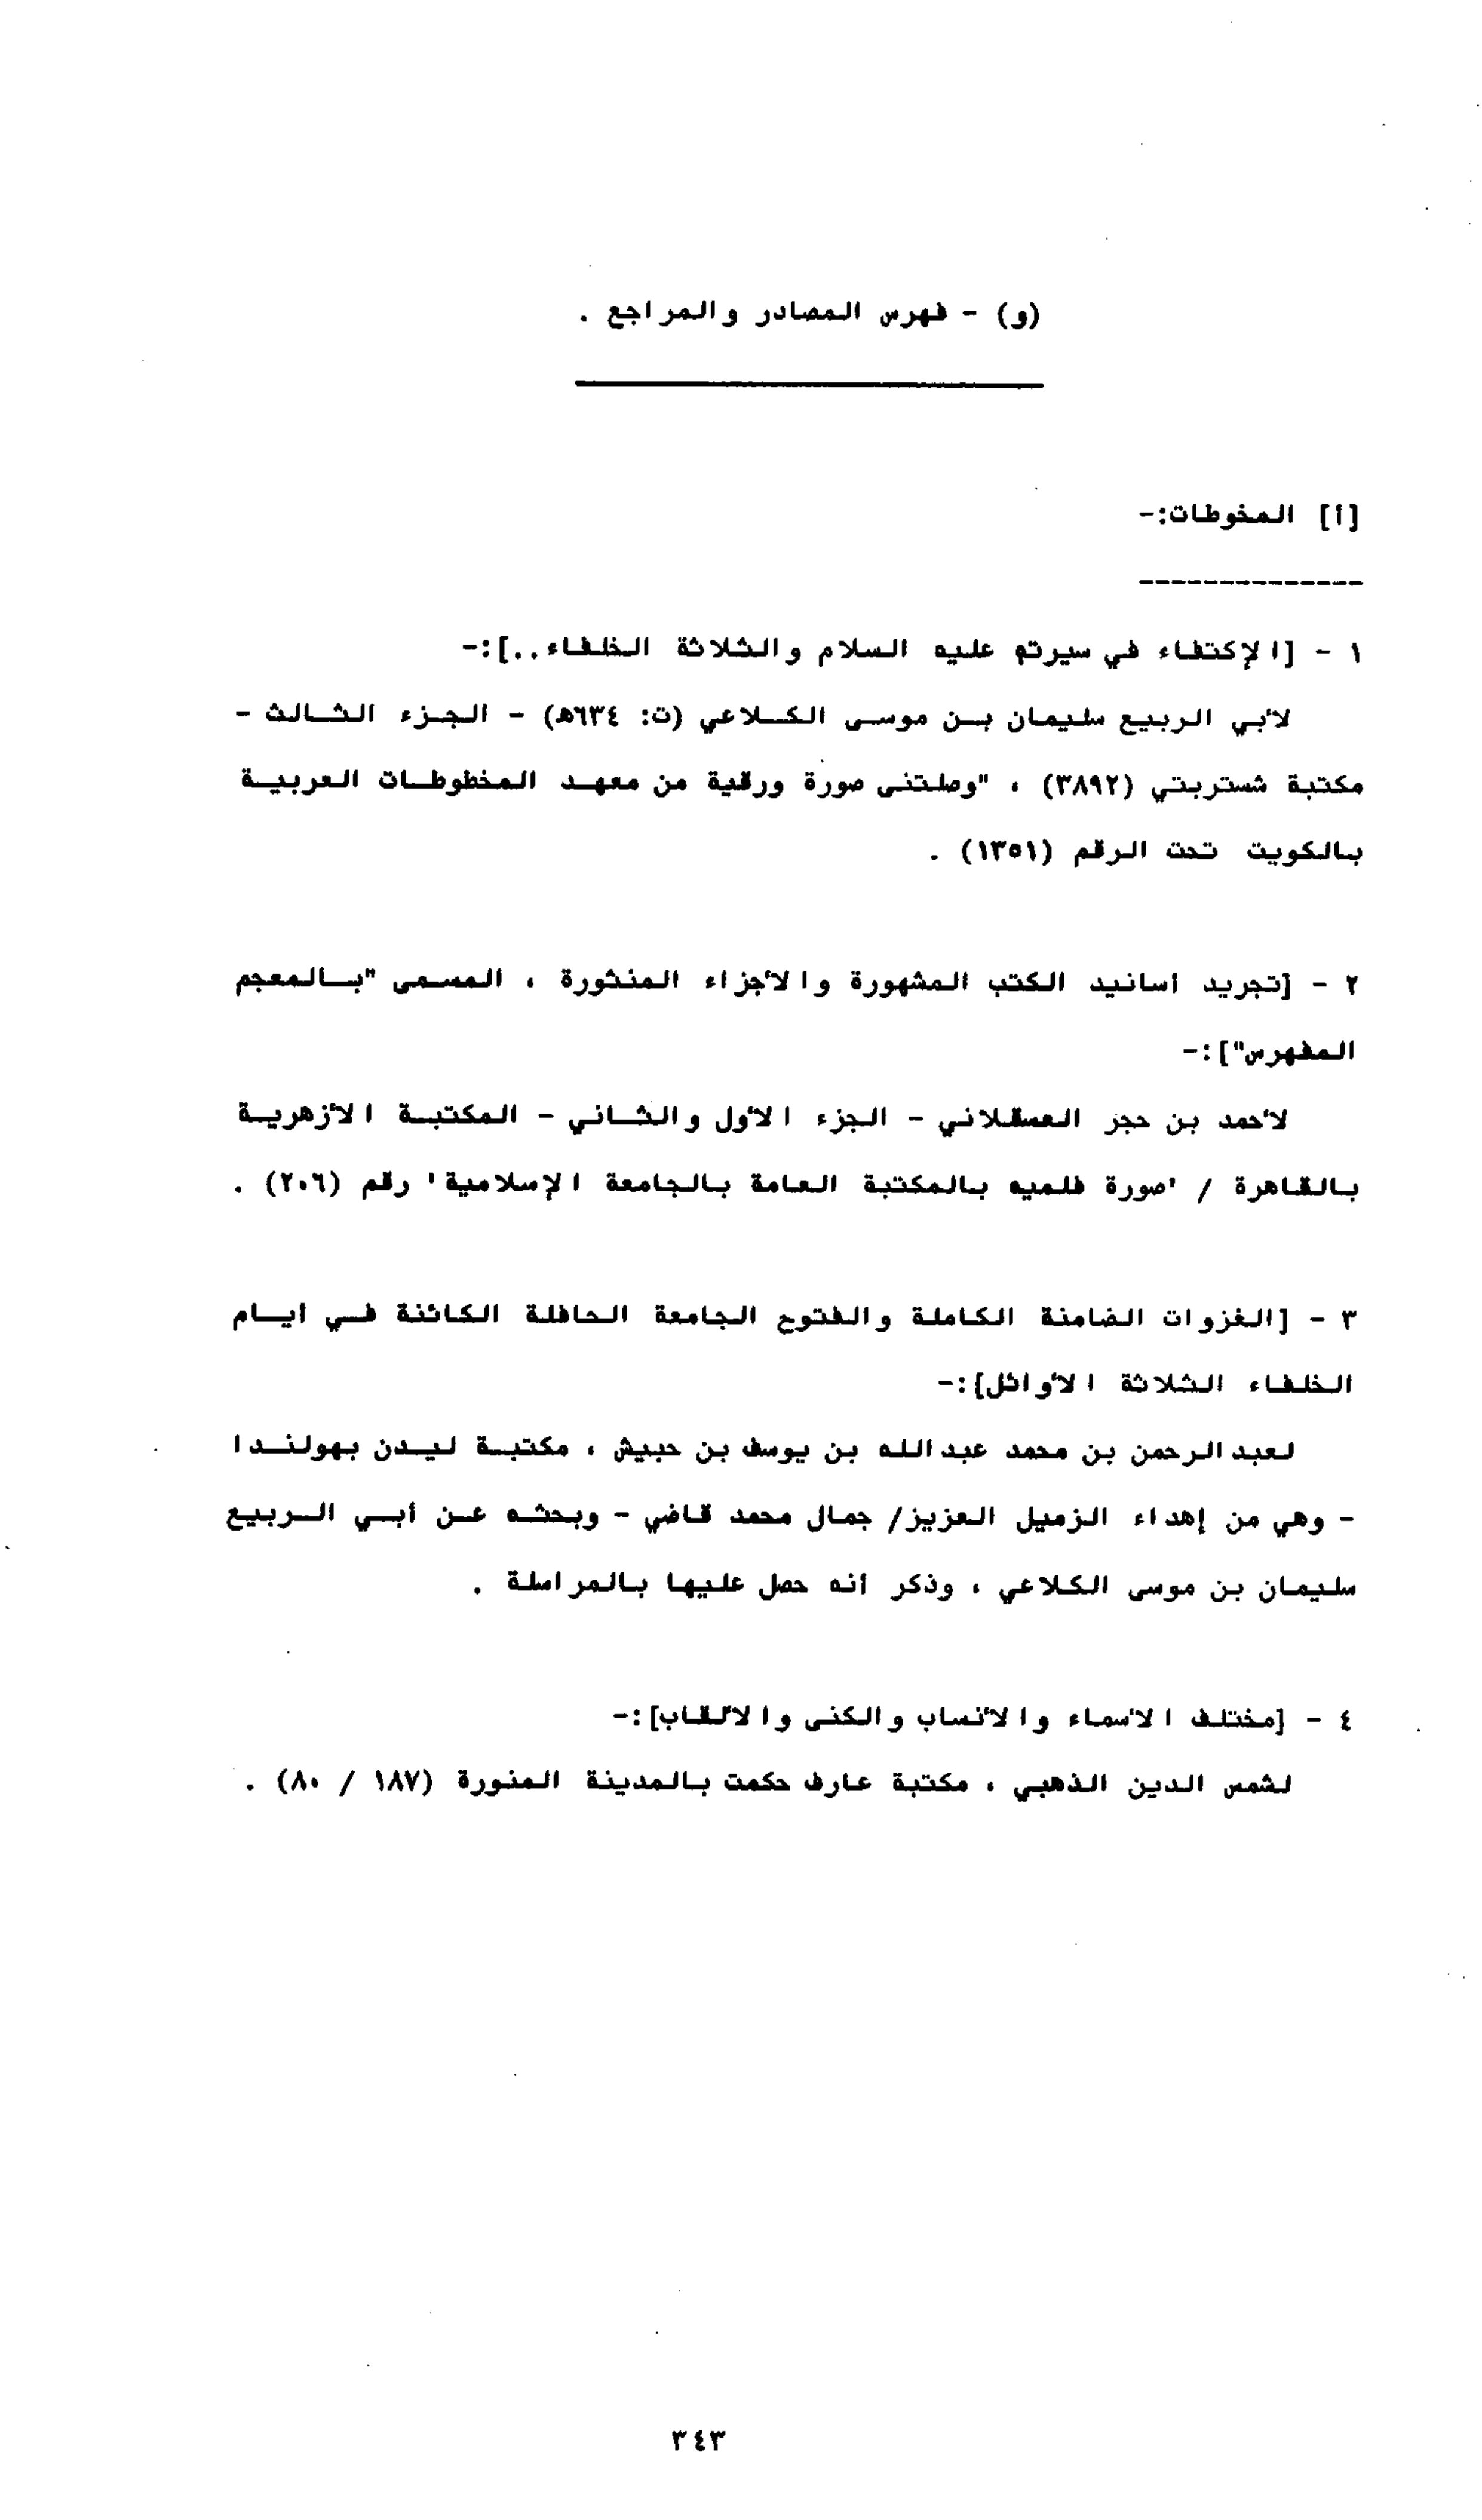 (و) - فهرس المصادر والمراجع .
[أ] المخوطات:-
١ - [الإكتفاء في سيرته عليه السلام والثلاثة الخلفاء..]:-
لأبي الربيع سليمان بن موسى الكلاعي (ت: ٦٣٤هـ) - الجزء الثالث -
مكتبة شستربتي (٣٨٩٢) ، "وصلتنى صورة ورقية من معهد المخطوطات العربية
بالكويت تحت الرقم (١٣٥١) .
٢ - [تجريد أسانيد الكتب المشهورة والأجزاء المنثورة ، المسمى "بالمعجم
المفهرس"]:-
لأحمد بن حجر العسقلاني - الجزء الأول والثاني - المكتبة الأزهرية
بالقاهرة / 'صورة فلميه بالمكتبة العامة بالجامعة الإسلامية' رقم (٢٠٦) .
٣ - [الغزوات الضامنة الكاملة والفتوح الجامعة الحافلة الكائنة في أيام
الخلفاء الثلاثة الأوائل]:-
لعبدالرحمن بن محمد عبدالله بن يوسف بن حبيش ، مكتبة ليدن بهولندا
- وهي من إهداء الزميل العزيز/ جمال محمد قاضي - وبحثه عن أبي الربيع
سليمان بن موسى الكلاعي ، وذكر أنه حصل عليها بالمراسلة .
٤ - [مختلف الأسماء والأنساب والكنى والألقاب]:-
لشمس الدين الذهبي ، مكتبة عارف حكمت بالمدينة المنورة (١٨٧ / ٨٠) .
٣٤٣